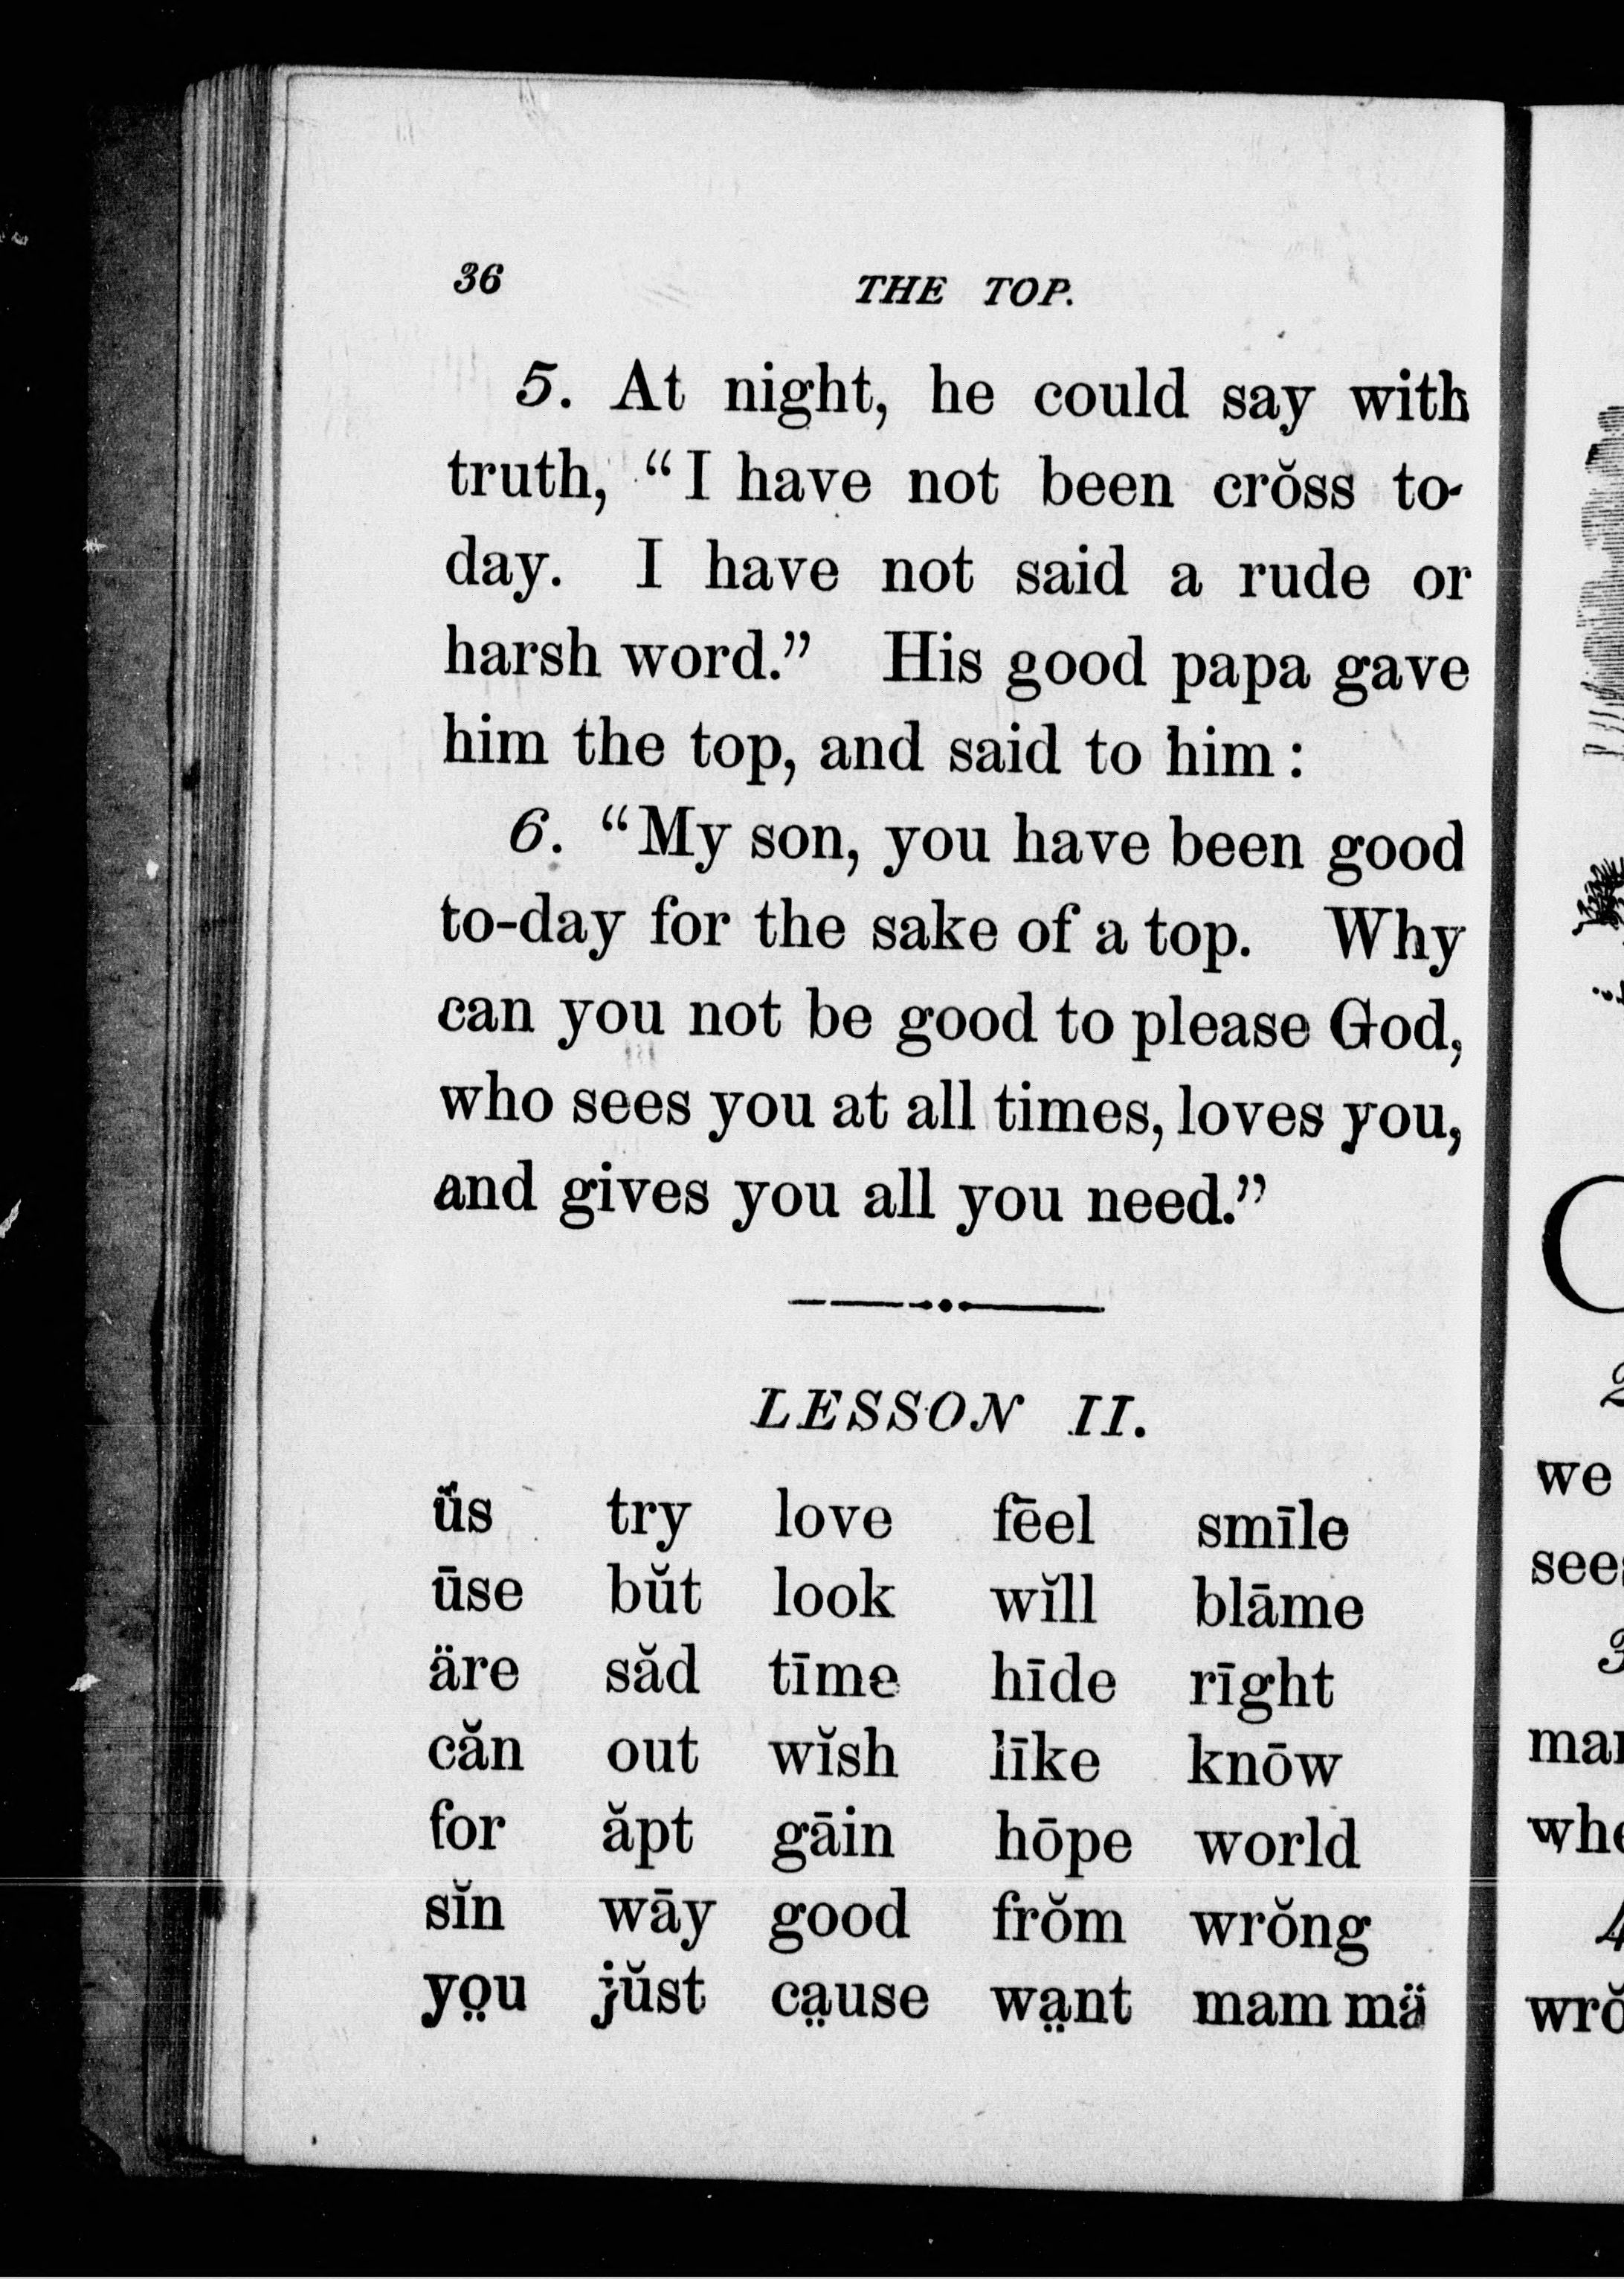 36 THE TOP.
5. At night, he could say with
truth, “I have not been crŏss to-
day. I have not said a rude or
harsh word.” His good papa gave
him the top, and said to him:
6. “My son, you have been good
to-day for the sake of a top. Why
can you not be good to please God,
who sees you at all times, loves you,
and gives you all you need.”
LESSON II.
ŭs try love fēel smīle
ūse bŭt look wĭll blāme
äre săd tīme hīde rīght
căn out wĭsh līke knōw
for ăpt gāin hōpe world
sĭn wāy good frŏm wrŏng
yo̤u jŭst ca̤use wa̤nt mam mä
we